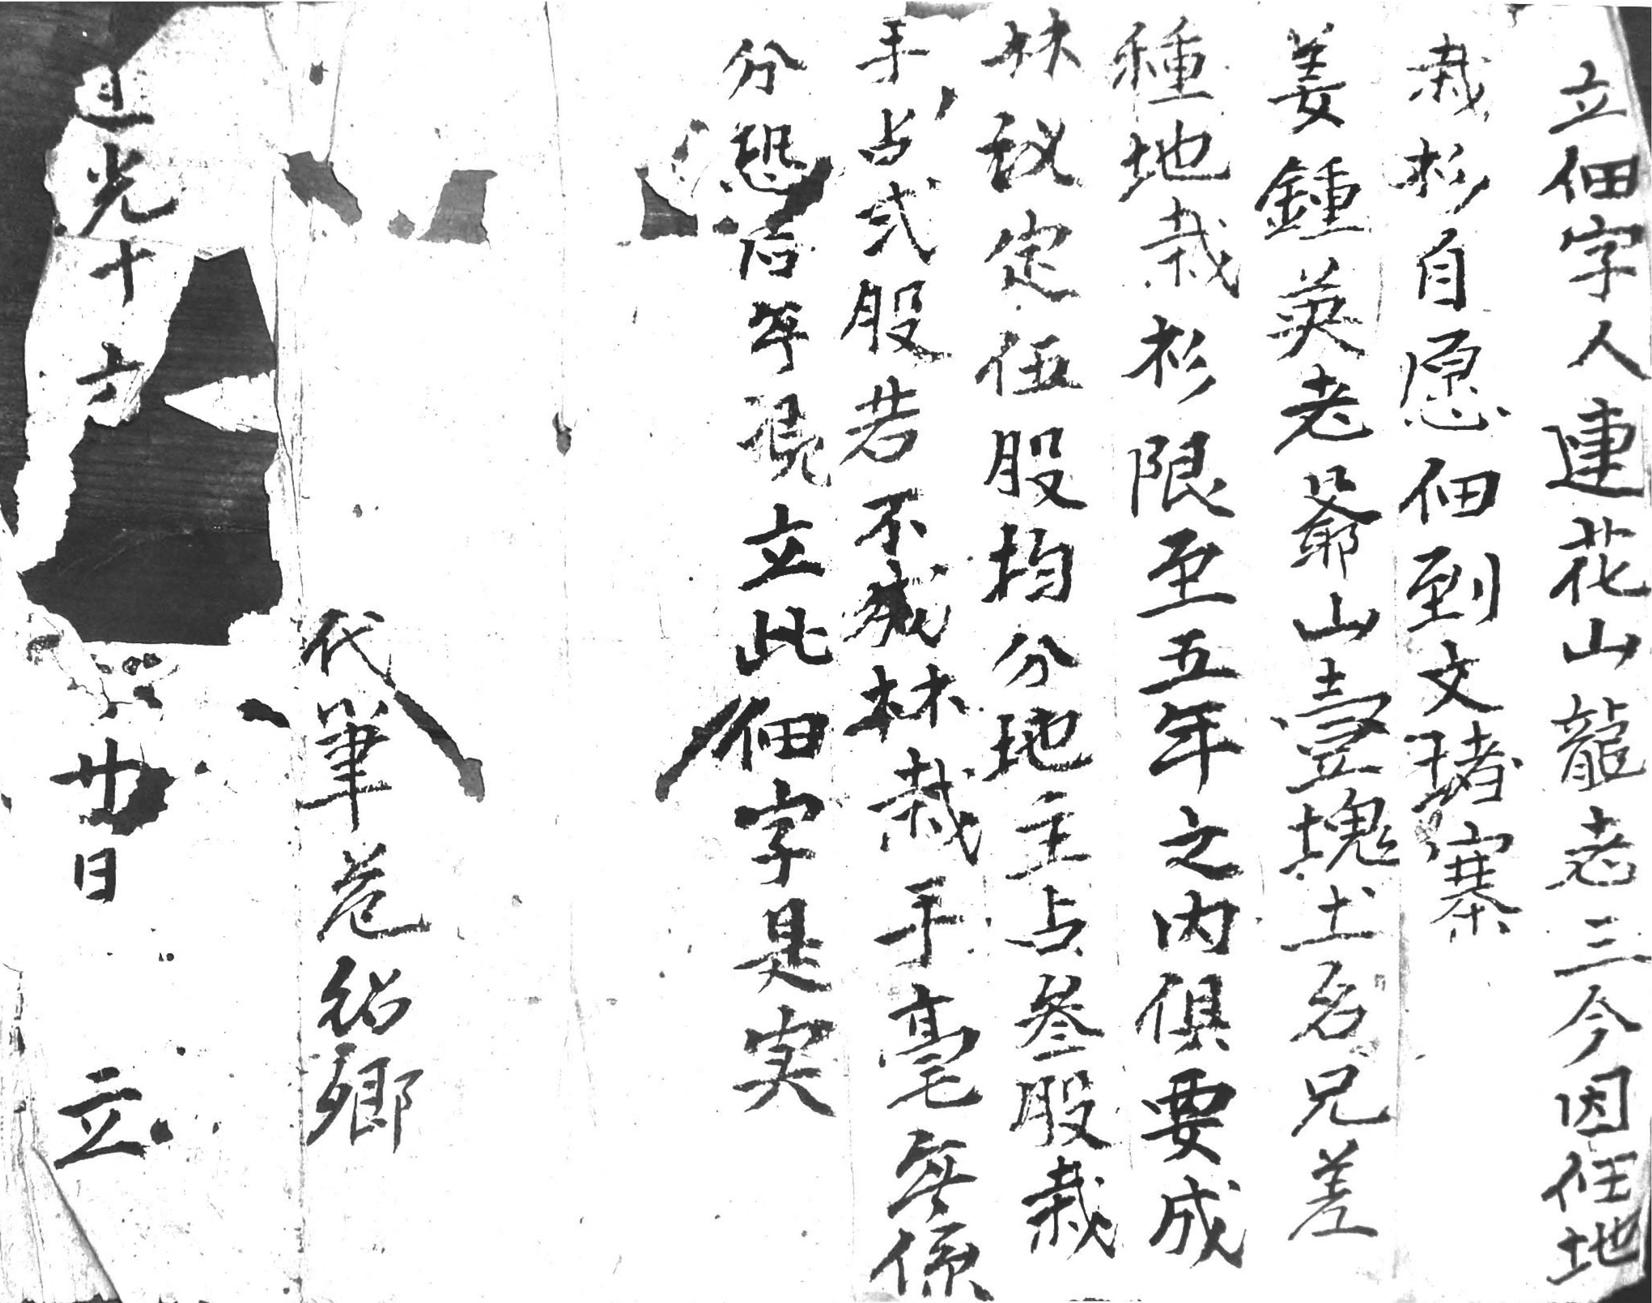 立佃字人連花山龍老三今因任地
栽杉自愿佃到文堵寨
姜鍾英老爺山壹塊土名兄差
種地栽杉限至五年之内俱要成
林议定伍股均分地主占叁股栽
手占弍股若不成林栽手毫無係
分恐后年混立此佃字是実
代筆范紹卿
道光十六
廿日 立